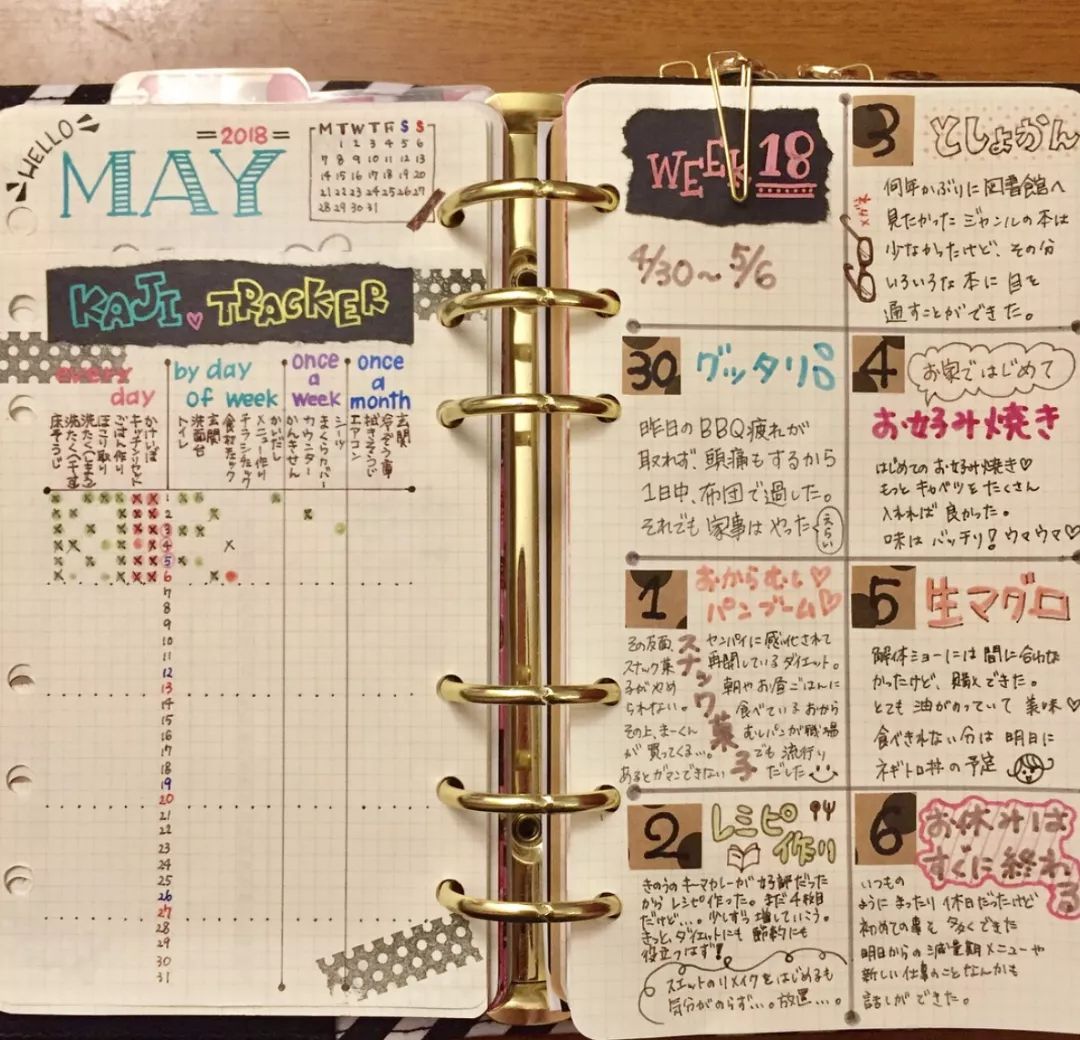 HELLO
2018
MAY
M T W T F S S
1 2 3 4 5 6
7 8 9 10 11 12 13
14 15 16 17 18 19 20
21 22 23 24 25 26 27
28 29 30 31
KAJI TRACKER
every day
by day of week
once a week
once a month
床そうじ
洗たく(干す)
洗たく(しまう)
ほこり取り
ごはん作り
キッチンリセット
かけいぼ
トイレ
洗面台
玄関
食材チェック
チラシチェック
メニュー作り
かいだし
かんきせん
カウンター
まくらカバー
シーツ
エアコン
拭きそうじ
冷ぞう庫
玄関
1
2
3
4
5
6
7
8
9
10
11
12
13
14
15
16
17
18
19
20
21
22
23
24
25
26
27
28
29
30
31
WEEK 18
4/30～5/6
30 グッタリ
昨日のBBQ疲れが
取れず、頭痛もするから
1日中、布団で過した。
それでも家事はやった
えらい
1 おからむし♡
パンブーム♡
ヤンパイに感化されて
再開しているダイエット。
朝やお昼ごはんに
食べているおから
むしパンが職場
でも流行り
だした
スナック菓子
その反面、
スナック菓
子がやめ
られない。
その上、まーくん
が買ってくる…。
あるとガマンできない
2 レシピ
作り
きのうのキーマカレーが好評だった
からレシピ作った。まだ4枚目
だけど…。少しずつ増していこう。
きっと、ダイエットにも節約にも
役立つはず!
スエットのリメイクをはじめるも
気分がのらず…。放置…。
3 としょかん
何年かぶりに図書館へ
見たかったジャンルの本は
少なかったけど、その分
いろいろな本に目を
通すことができた。
メガネ
4 お家ではじめて
お好み焼き
はじめてのお好み焼き♡
もっとキャベツをたくさん
入れれば良かった。
味はバッチリ!ウマウマ♡
5 生マグロ
解体ショーには間に合わな
かったけど、購入できた。
とても油がのっていて美味♡
食べきれない分は明日に
ネギトロ丼の予定
6 お休みは
すぐに終わる
いつもの
ようにまったり休日だったけど
初めての事を多くできた
明日からの減量期メニューや
新しい仕事のことなんかも
話しができた。